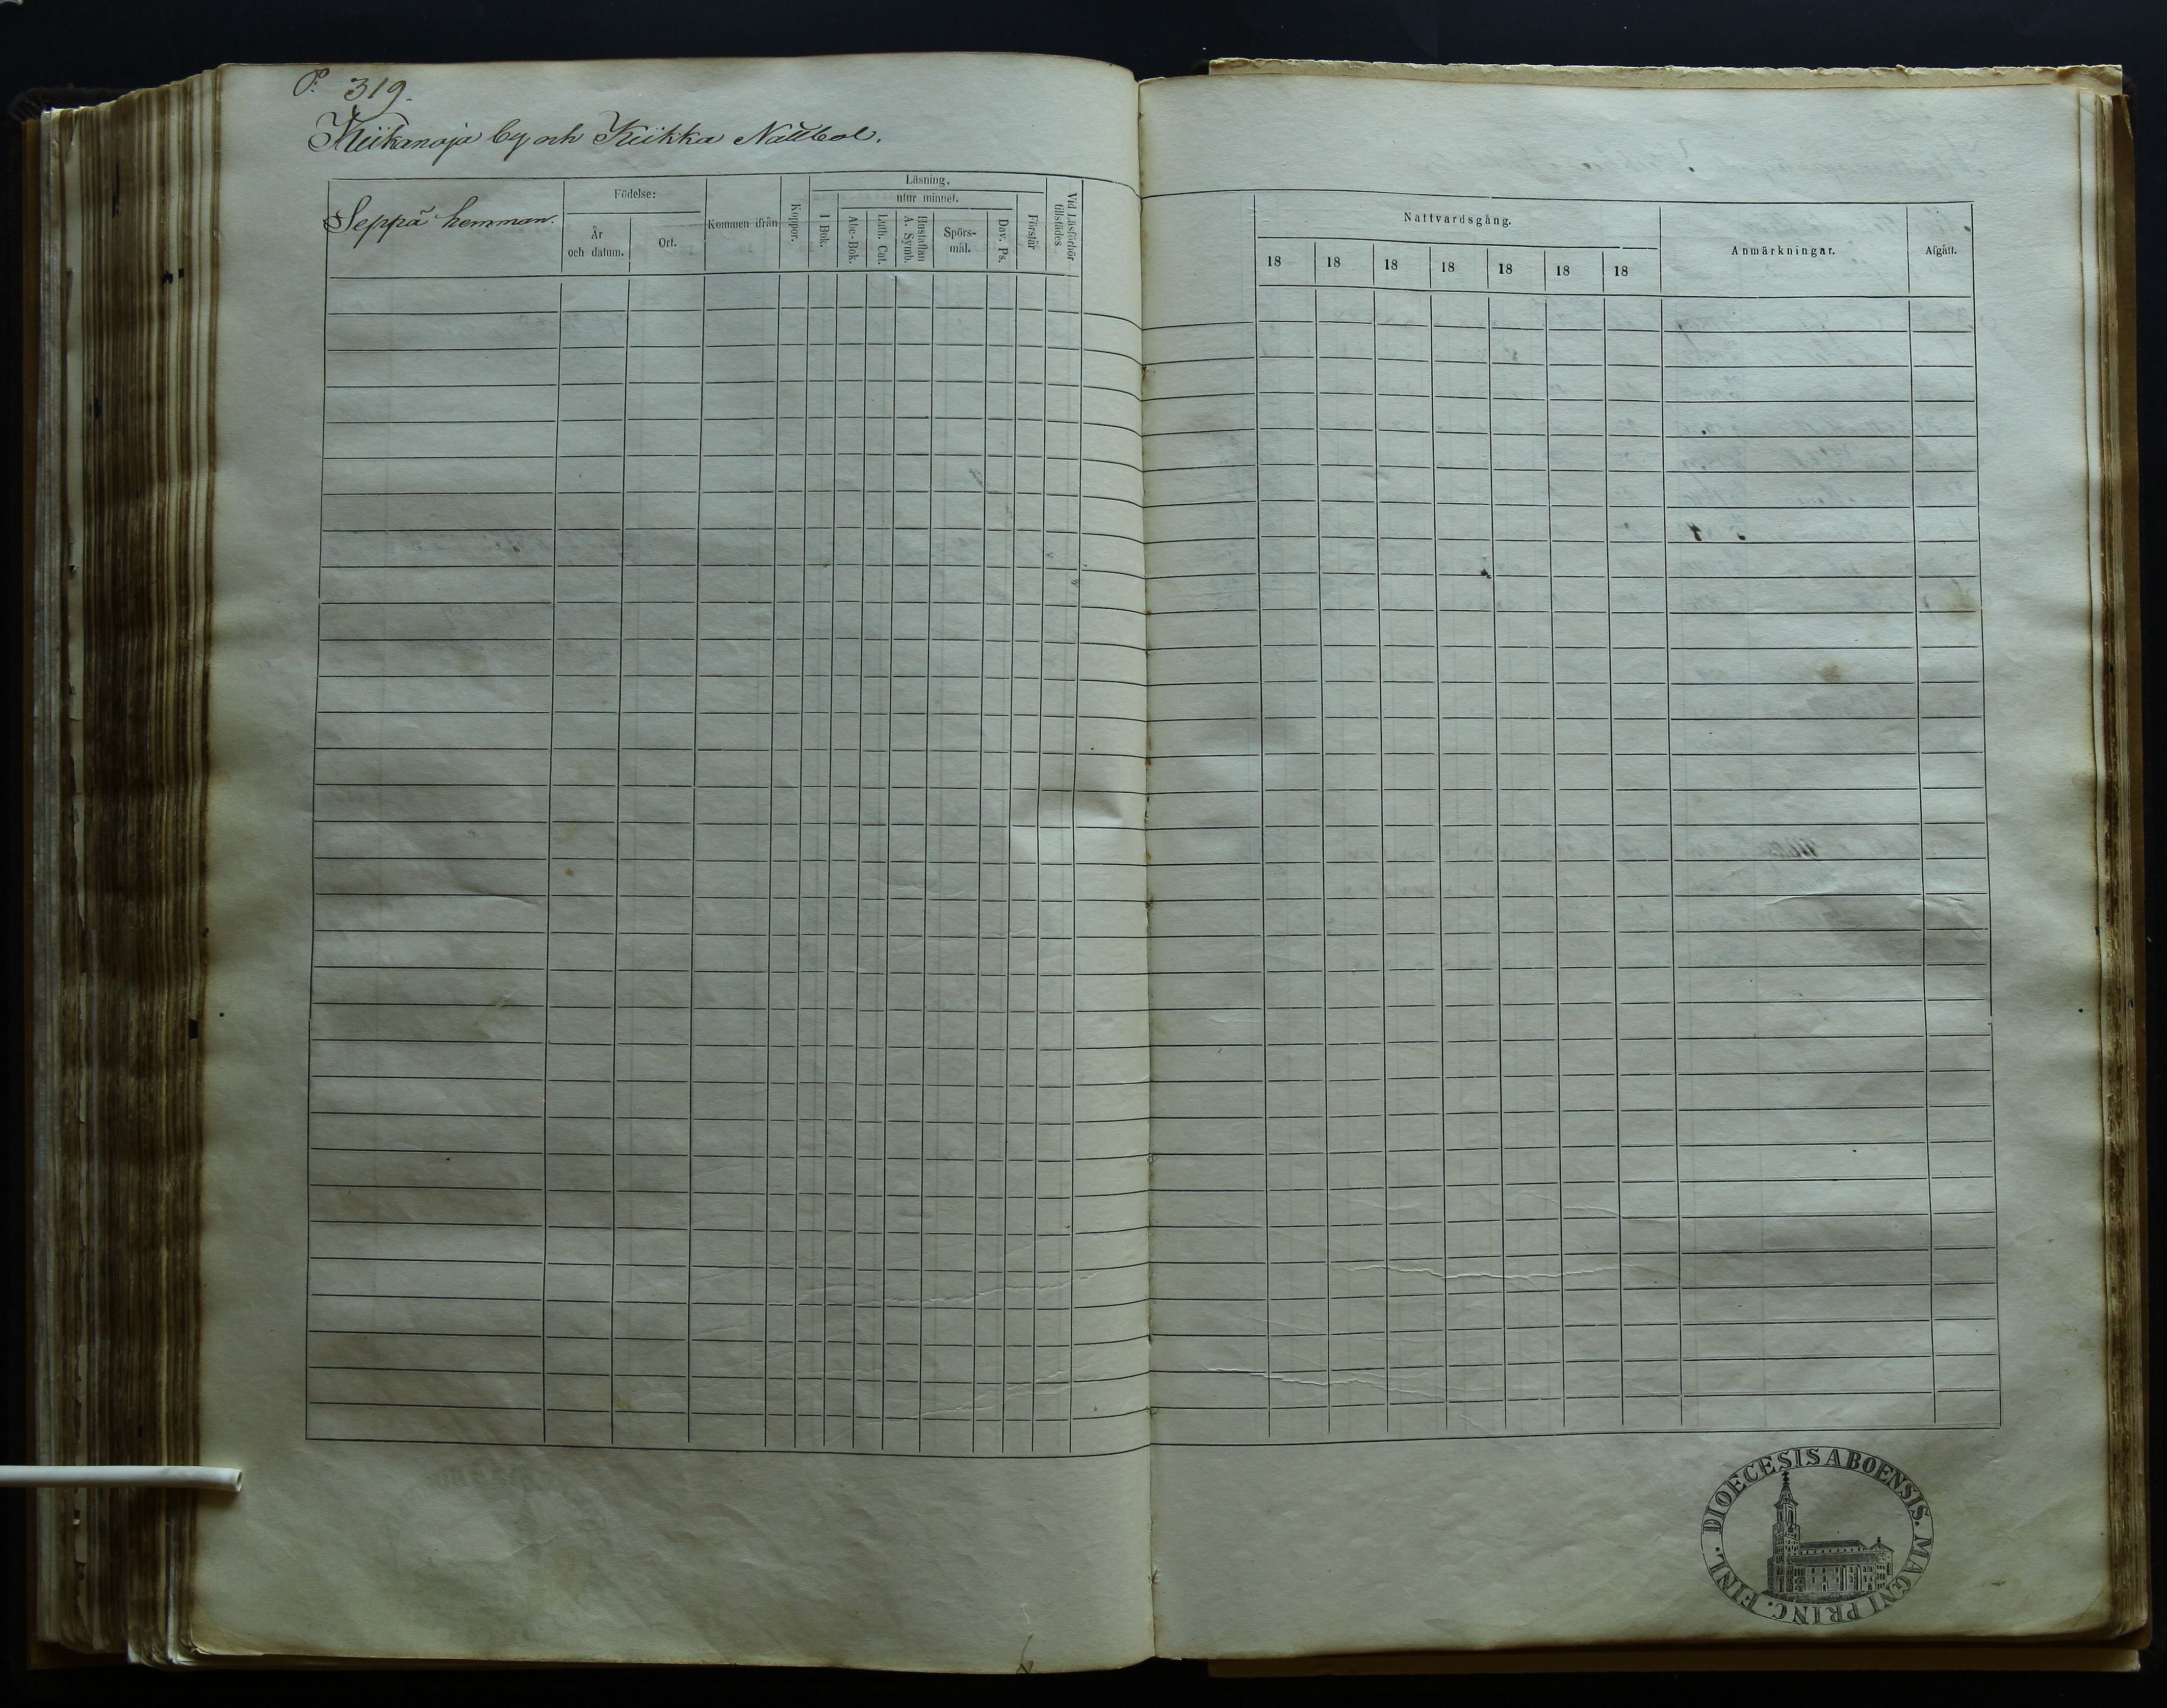 P. 319.
Kiikanoja by och Kiikka Nattbol.
Seppä hemman.
Födelse:
År
och datum.
Ort.
Kommen ifrån
Koppor.
Läsning,
utur minnet.
I Bok.
Abc-Bok.
Luth. Cat.
Hustaflan
A. Symb.
Spörs-
mål.
Dav. Ps.
Förstår
Vid Läsförhör
tillstädes
Nattvardsgång.
18 18 18 18 18 18 18
Anmärkningar.
Afgått.
DIOECESIS ABOENSIS. MAGNI PRINC. FINL.